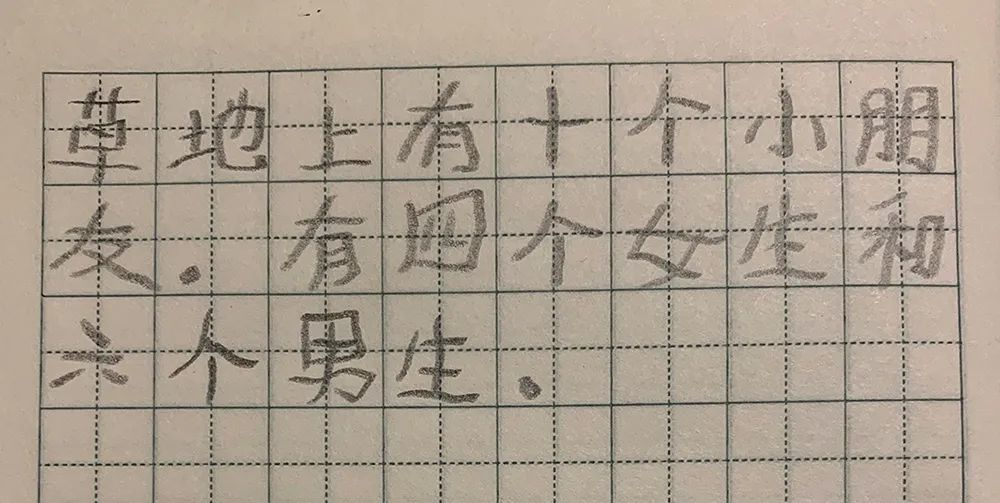 草地上有十个小朋
友.有四个女生和
六个男生.